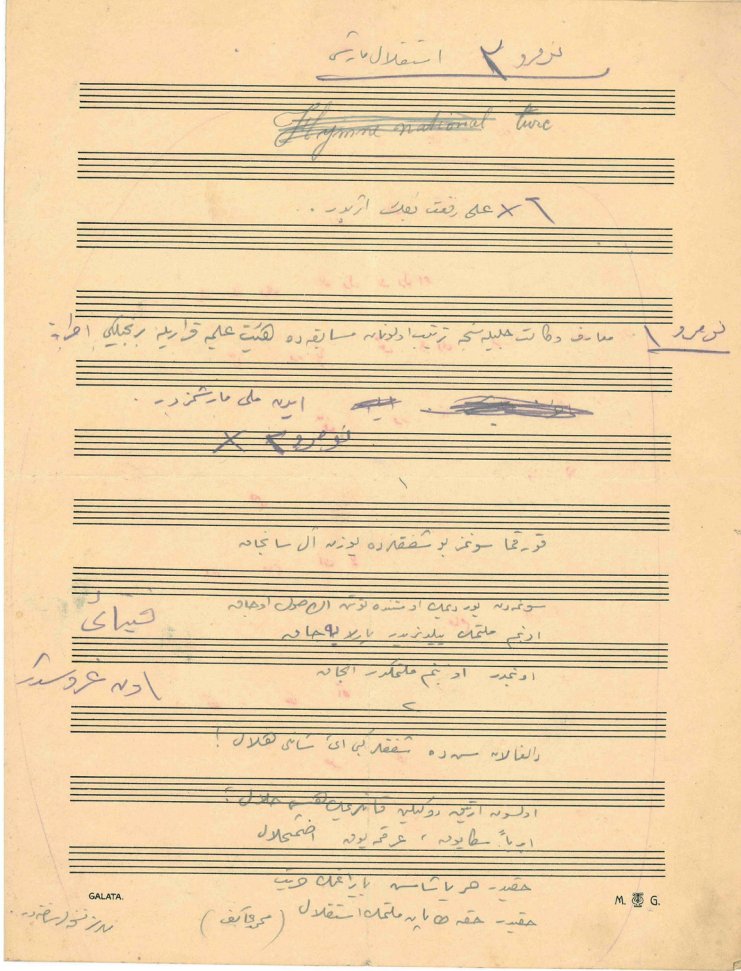 نومرو ٢ استقلال مارشی
Hymne national turc
علی رفعت بكك اثریدر . .
نومرو ١ معارف وكالت جلیله‌سنجه ترتیب اولونان مسابقه‌ده هیئت علمیه قراریله برنجیلكی احراز
ایدن ملی مارشمزدر .
نومرو ٣
١
قورقما سونمز بو شفقلرده یوزن آل سانجاق
سونمه‌دن یوردیمك اوستنده توتن اك صوك اوجاق
او بنم ملتمك ییلدیزیدر پارلایه‌جاق
او بنمدر او بنم ملتمكدر آنجاق
٢
دالغالان سن ده شفقلر كبی ای شانلی هلال !
اولسون آرتیق دوكیلن قانلرمك هپسی حلال !
ابدیاً سكا یوق ، عرقمه یوق اضمحلال
حقیدر حر یاشامش بایراغمك حریت
حقیدر حقه طاپان ملتمك استقلال ( محمد عاكف )
فیئاتی
اون غروشدر
GALATA.
M. G.